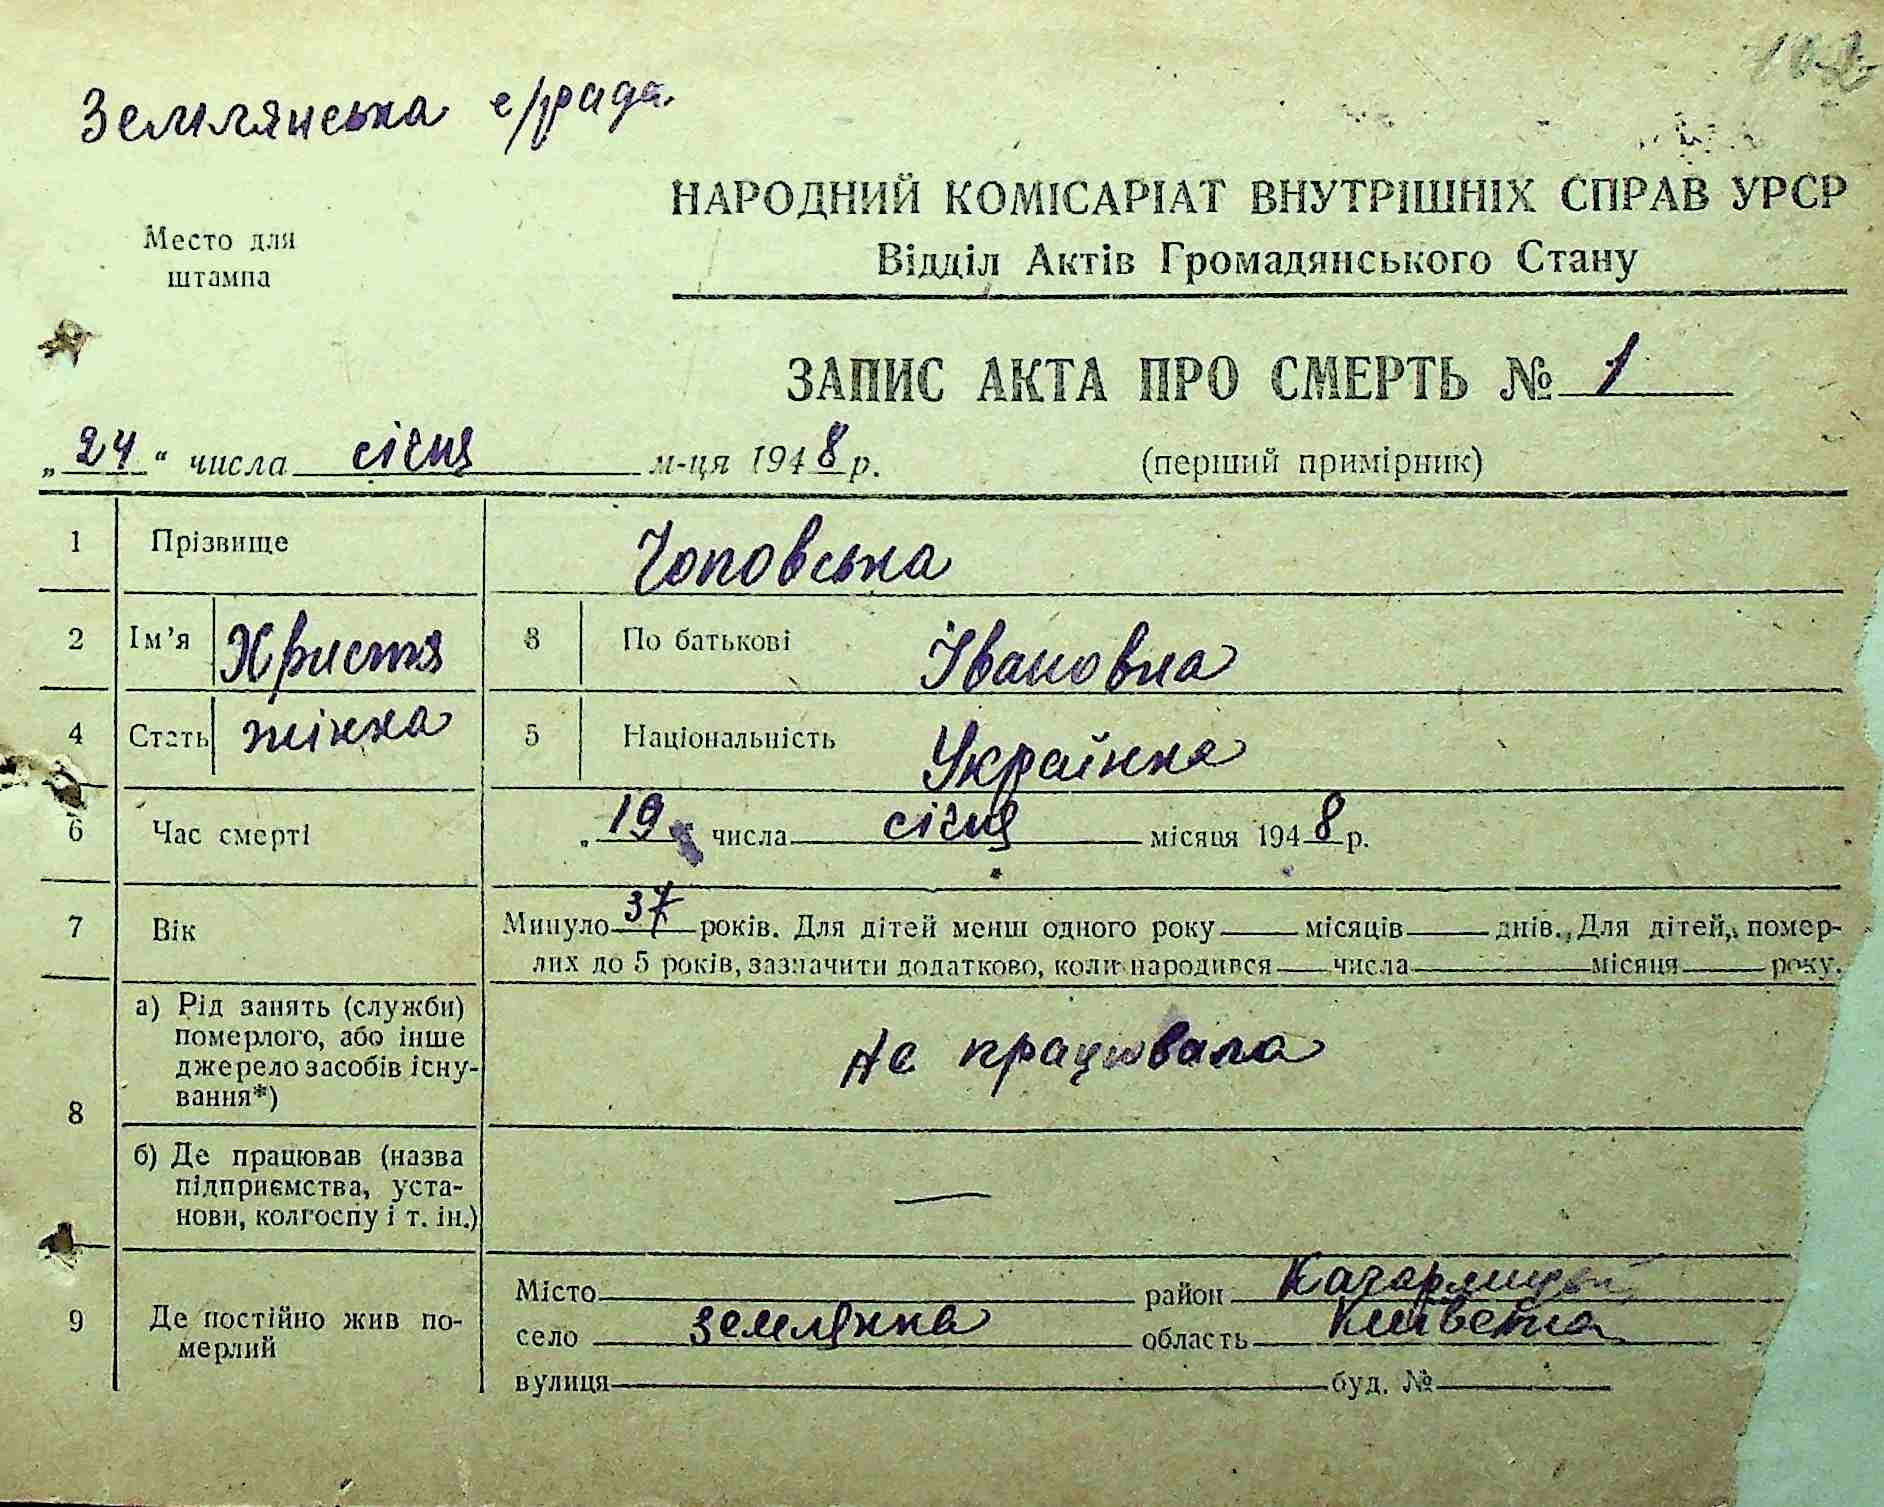 Землянська с/рада.
НАРОДНИЙ КОМІСАРІАТ ВНУТРІШНІХ СПРАВ УРСР
Відділ Актів Громадянського Стану
Место для
штампа
ЗАПИС АКТА ПРО СМЕРТЬ № 1
„24“ числа січня м-ця 1948 р. (перший примірник)
1 Прізвище Чоповська
2 Ім'я Христя 3 По батькові Івановна
4 Стать жінка 5 Національність Українка
6 Час смерті „19 числа січня місяця 1948 р.
7 Вік Минуло 37 років. Для дітей менш одного року місяців днів. Для дітей, помер-
лих до 5 років, зазначити додатково, коли народився числа місяця року.
8 а) Рід занять (служби)
померлого, або інше
джерело засобів існу-
вання*) Не працювала
б) Де працював (назва
підприємства, уста-
нови, колгоспу і т. ін.) —
9 Де постійно жив по-
мерлий
Місто район
село Землянка область Київська
вулиця буд. №